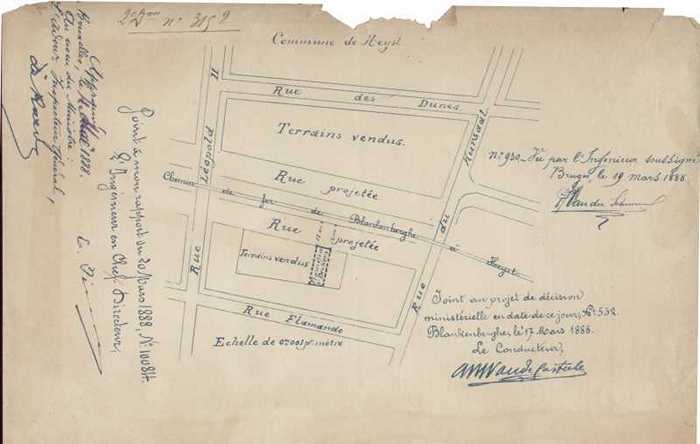 2e Don no 315 2
Commune de Heyst
Approuvé
Bruxelles, le Mars 1888.
Au nom du Ministre:
L'Inspecteur Général,
Joint à mon rapport du 20 Mars 1888, No 10084.
L'Ingénieur en Chef Directeur,
Rue des Dunes
Terrains vendus.
Rue Léopold II
Rue projetée
Chemin de fer de Blankenberghe à Heyst
Rue projetée
Terrains vendus
Rue du Kursaal
Rue Flamande
Echelle de 0,001 pr mètre
No 932. Vu par l'Ingénieur soussigné
Bruges, le 19 mars 1888.
Joint au projet de décision
ministérielle en date de ce jour, No 532.
Blankenberghe, le 17 Mars 1888.
Le Conducteur,